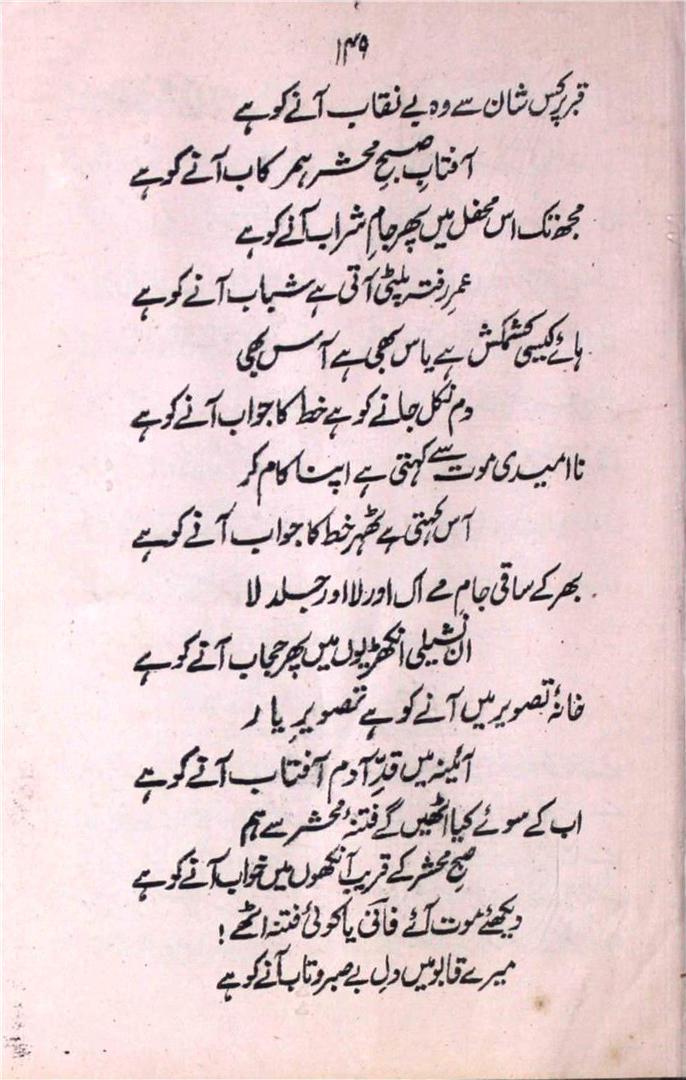 ۱۴۹
قبر پر کس شان سے وہ بے نقاب آنے کو ہے
آفتابِ صبحِ محشر ہمرکاب آنے کو ہے
مجھ تک اس محفل میں پھر جامِ شراب آنے کو ہے
عمرِ رفتہ پلٹی آتی ہے شباب آنے کو ہے
ہائے کیسی کشمکش ہے یاس بھی ہے آس بھی
دم نکل جانے کو ہے خط کا جواب آنے کو ہے
نا امیدی موت سے کہتی ہے اپنا کام کر
آس کہتی ہے ٹھہر خط کا جواب آنے کو ہے
بھر کے ساقی جامِ مے اک اور لا اور جلد لا
ان نشیلی انکھڑیوں میں پھر حجاب آنے کو ہے
خانۂ تصویر میں آنے کو ہے تصویرِ یار
آئینہ میں قدِّ آدم آفتاب آنے کو ہے
اب کے سوئے کیا اٹھیں گے فتنۂ محشر سے ہم
صبحِ محشر کے قریب آنکھوں میں خواب آنے کو ہے
دیکھئے موت آئے فانی یا کوئی فتنہ اٹھے!
میرے قابو میں دلِ بے صبر و تاب آنے کو ہے